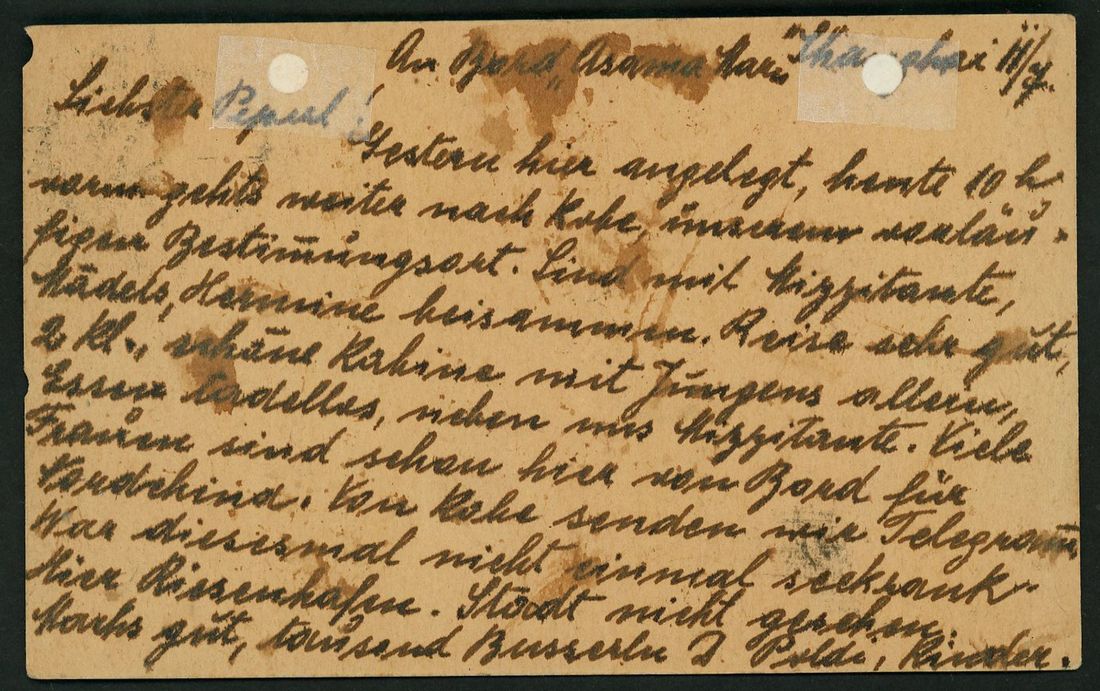 An Bord "Asama Maru" Shanghai 11/7.
Liebster Peperl!
Gestern hier angelegt, heute 10 h
vorm gehts weiter nach Kobe unserem vorläu-
figen Bestimmungsort. Sind mit Mizzitante,
Mädels, Hermine beisammen. Reise sehr gut,
2 Kl., schöne Kabine mit Jungens allein,
Essen tadellos, neben uns Mizzitante. Viele
Frauen sind schon hier von Bord für
Nordchina. Von Kobe senden wir Telegramm
War diesesmal nicht einmal seekrank
Hier Riesenhafen. Stadt nicht gesehen.
Machs gut, tausend Busserln D Poldi, Kinder.